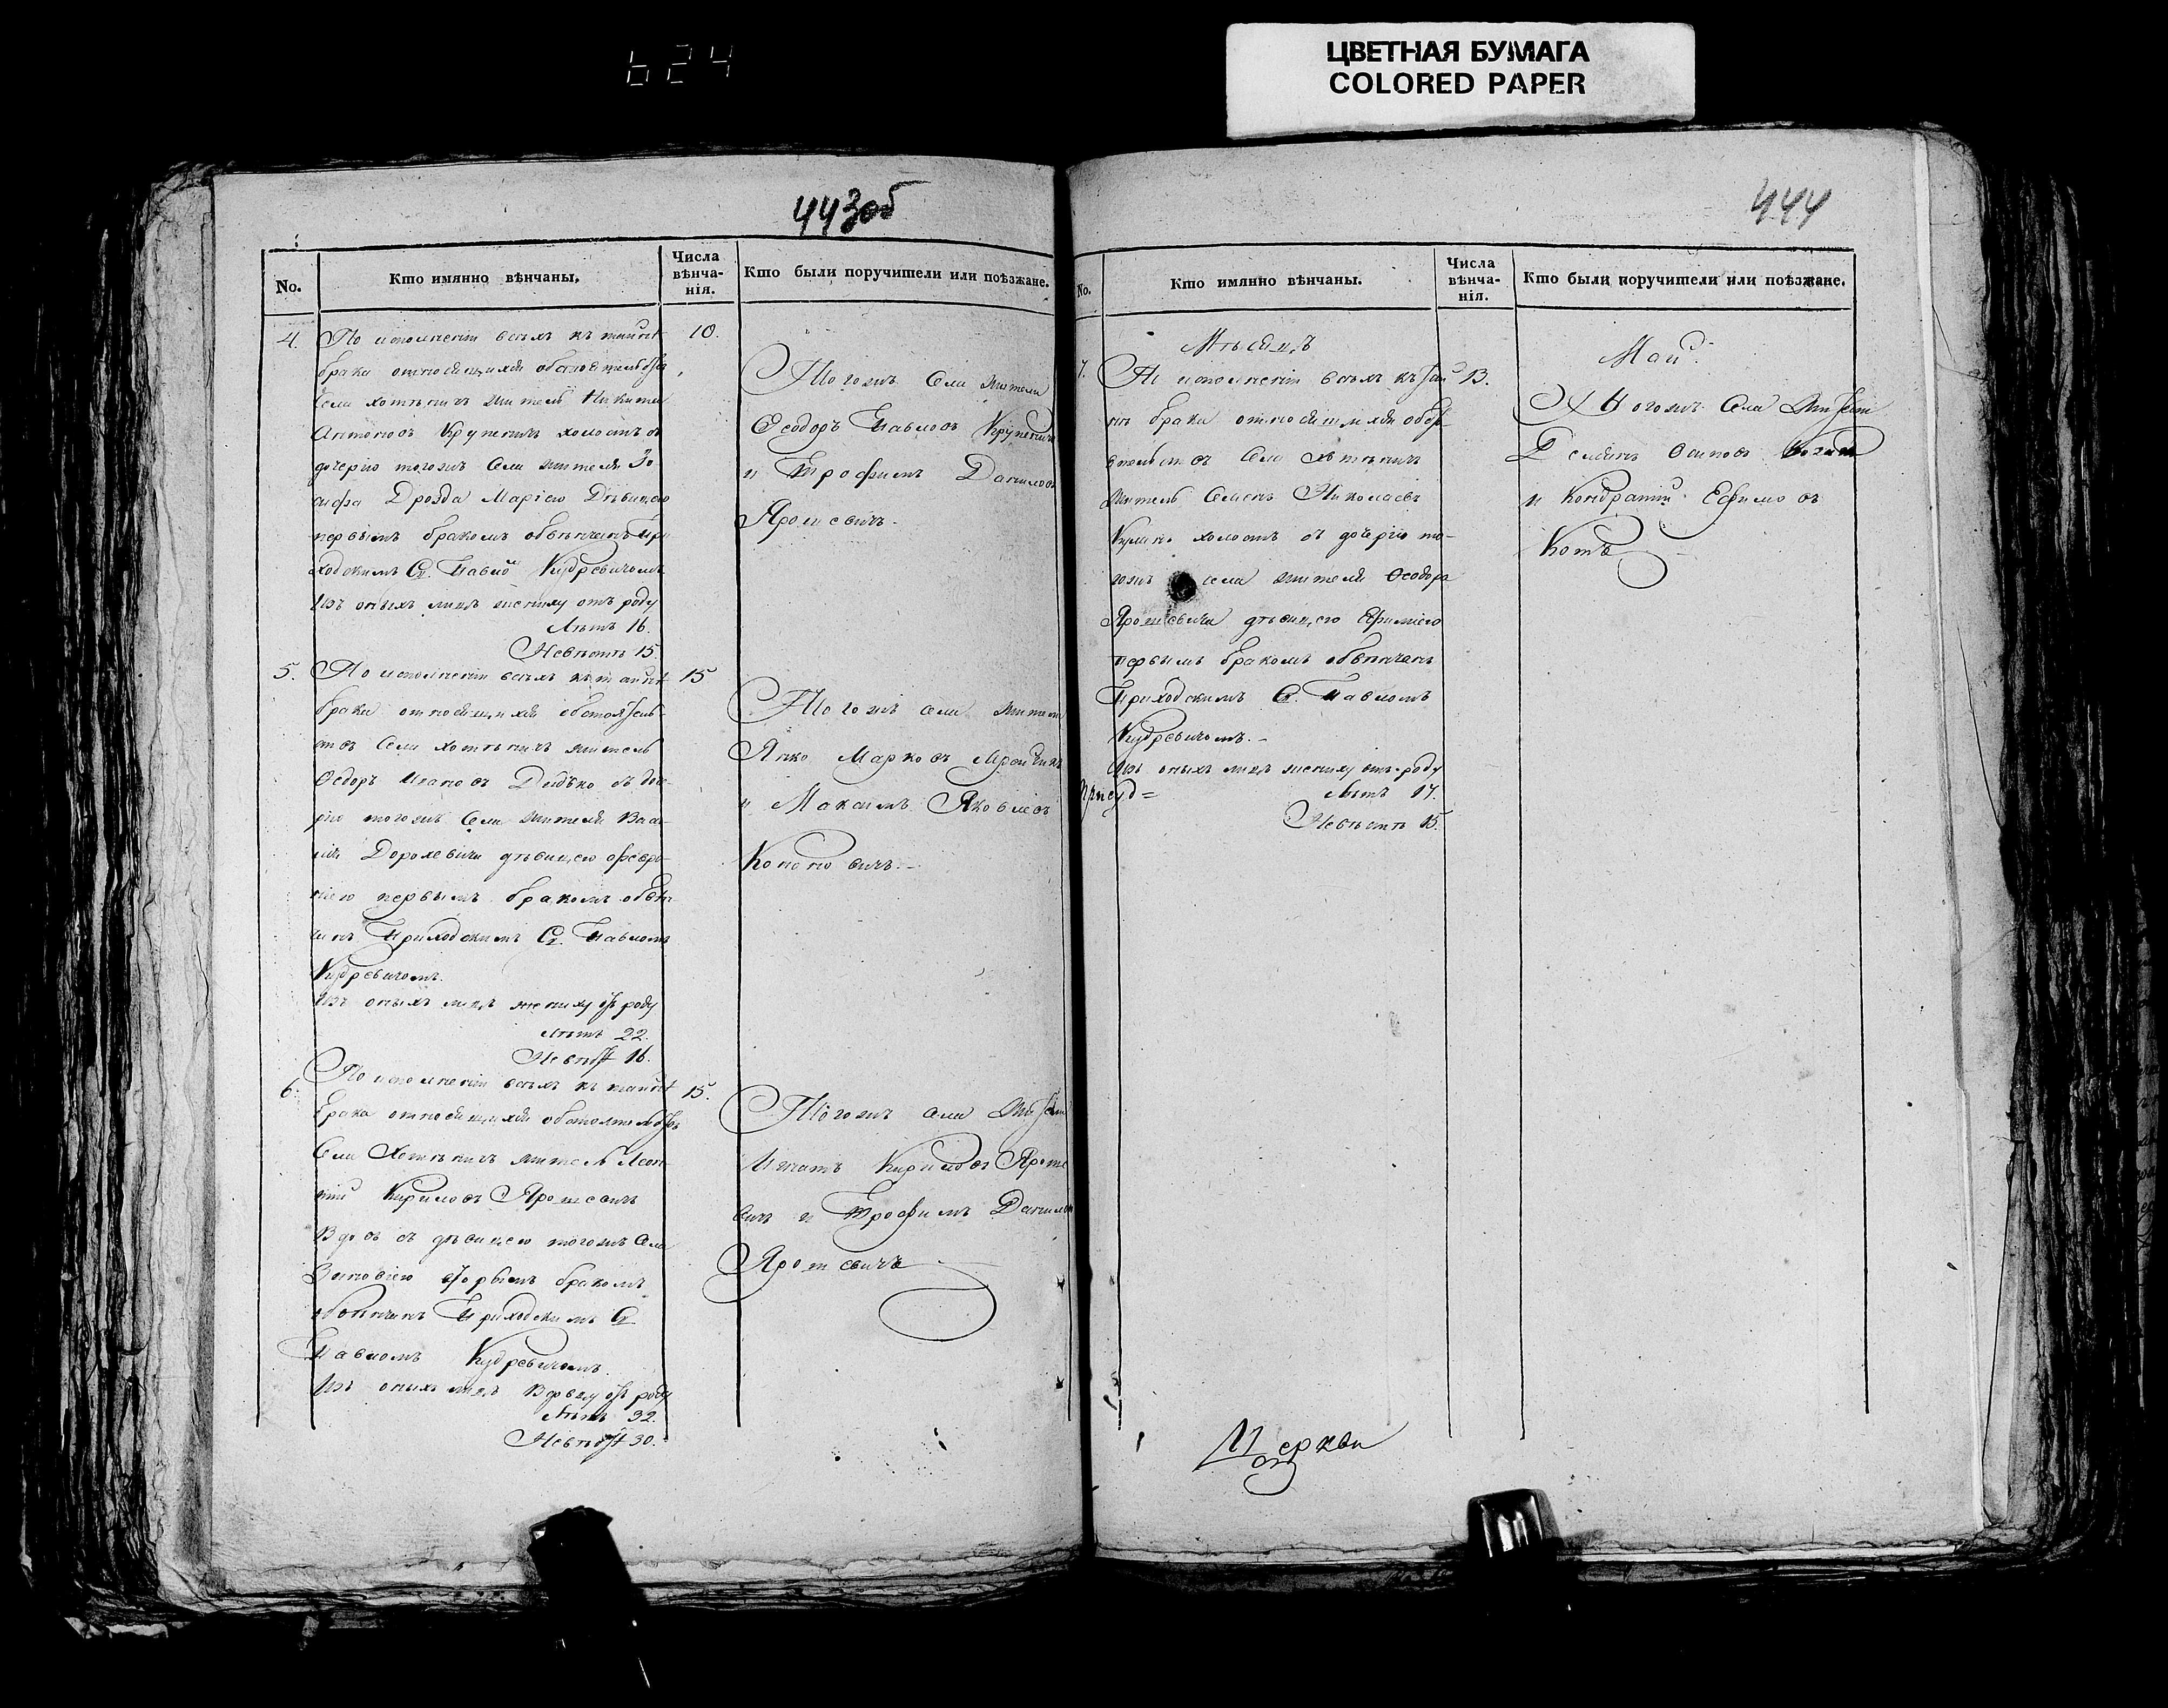 624
ЦВЕТНАЯ БУМАГА
COLORED PAPER
443об
No.
Кто имянно вѣнчаны.
Числа
вѣнча-
нія.
Кто были поручители или поѣзжане.
4.
По исполненіи всѣхъ къ таинст
10.
брака относящихся обстоятельствъ
села Хотѣничъ житель Никита
Антоновъ Крупеничъ холостъ съ
дочерію тогожъ села жителя Іо-
сифа Дрозда Маріею дѣвицею
первымъ бракомъ обвѣнчанъ При
ходскимъ Св. Павло Кудревичомъ
Изъ оныхъ лицъ жениху отъ роду
лѣтъ 16.
Невѣстѣ 15.
Тогожъ села жители
Ѳеодоръ Павловъ Крупеничъ
и Трофимъ Даниловъ
Яромевичъ.
5.
По исполненіи всѣхъ къ таинст
15
брака относящихся обстоятель-
ствъ села Хотѣничъ житель
Ѳедоръ Ивановъ Дидько съ доч-
рію тогожъ села жителя Васи-
лія Доролевича дѣвицею Февро-
ніею первымъ бракомъ обвѣн
чанъ Приходскимъ Св. Павломъ
Кудревичомъ.
Изъ оныхъ лицъ жениху отъ роду
лѣтъ 22.
Невѣст 16.
Тогожъ села жители
Янко Марковъ
и Максимъ Яковлевъ
Кононовичъ.
6.
По исполненіи всѣхъ къ таинст
15.
брака относящихся обстоятельствъ
села Хотѣничъ житель Леон-
тій Кириловъ Яромевичъ
Вдовъ съ дѣвицею тогожъ села
Зиновіею вторымъ бракомъ
обвѣнчанъ Приходскимъ Св
Павломъ Кудревичомъ.
Изъ оныхъ лицъ Вдовцу отъ роду
лѣтъ 32.
Невѣст 30.
Тогожъ села жители
Игнатъ Кириловъ Яроме
вичъ и Трофимъ Данилов
Яромевичъ
444
No.
Кто имянно вѣнчаны.
Числа
вѣнча-
нія.
Кто были поручители или поѣзжане.
Мѣсяцъ
Май.
7.
По исполненіи всѣхъ къ таи
13.
нѣ брака относящихся обст
ятельствъ села Хотѣничъ
житель Семенъ Николаевъ
холостъ съ дочерію то-
гожъ села жителя Ѳеодора
Яромевича дѣвицею Ефиміею
первымъ бракомъ обвѣнчанъ
Приходскимъ Св. Павломъ
Кудревичомъ.
Изъ оныхъ лицъ жениху отъ роду
лѣтъ 17.
Невѣстѣ 15.
Тогожъ села жители
Демянъ Осиповъ
и Кондратій Ефимовъ
Котъ
Церкви